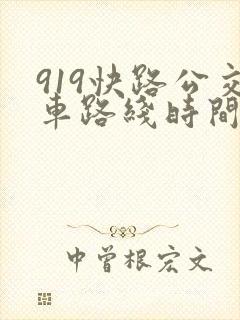 919快路公交
車路綫時間
中曾根宏文